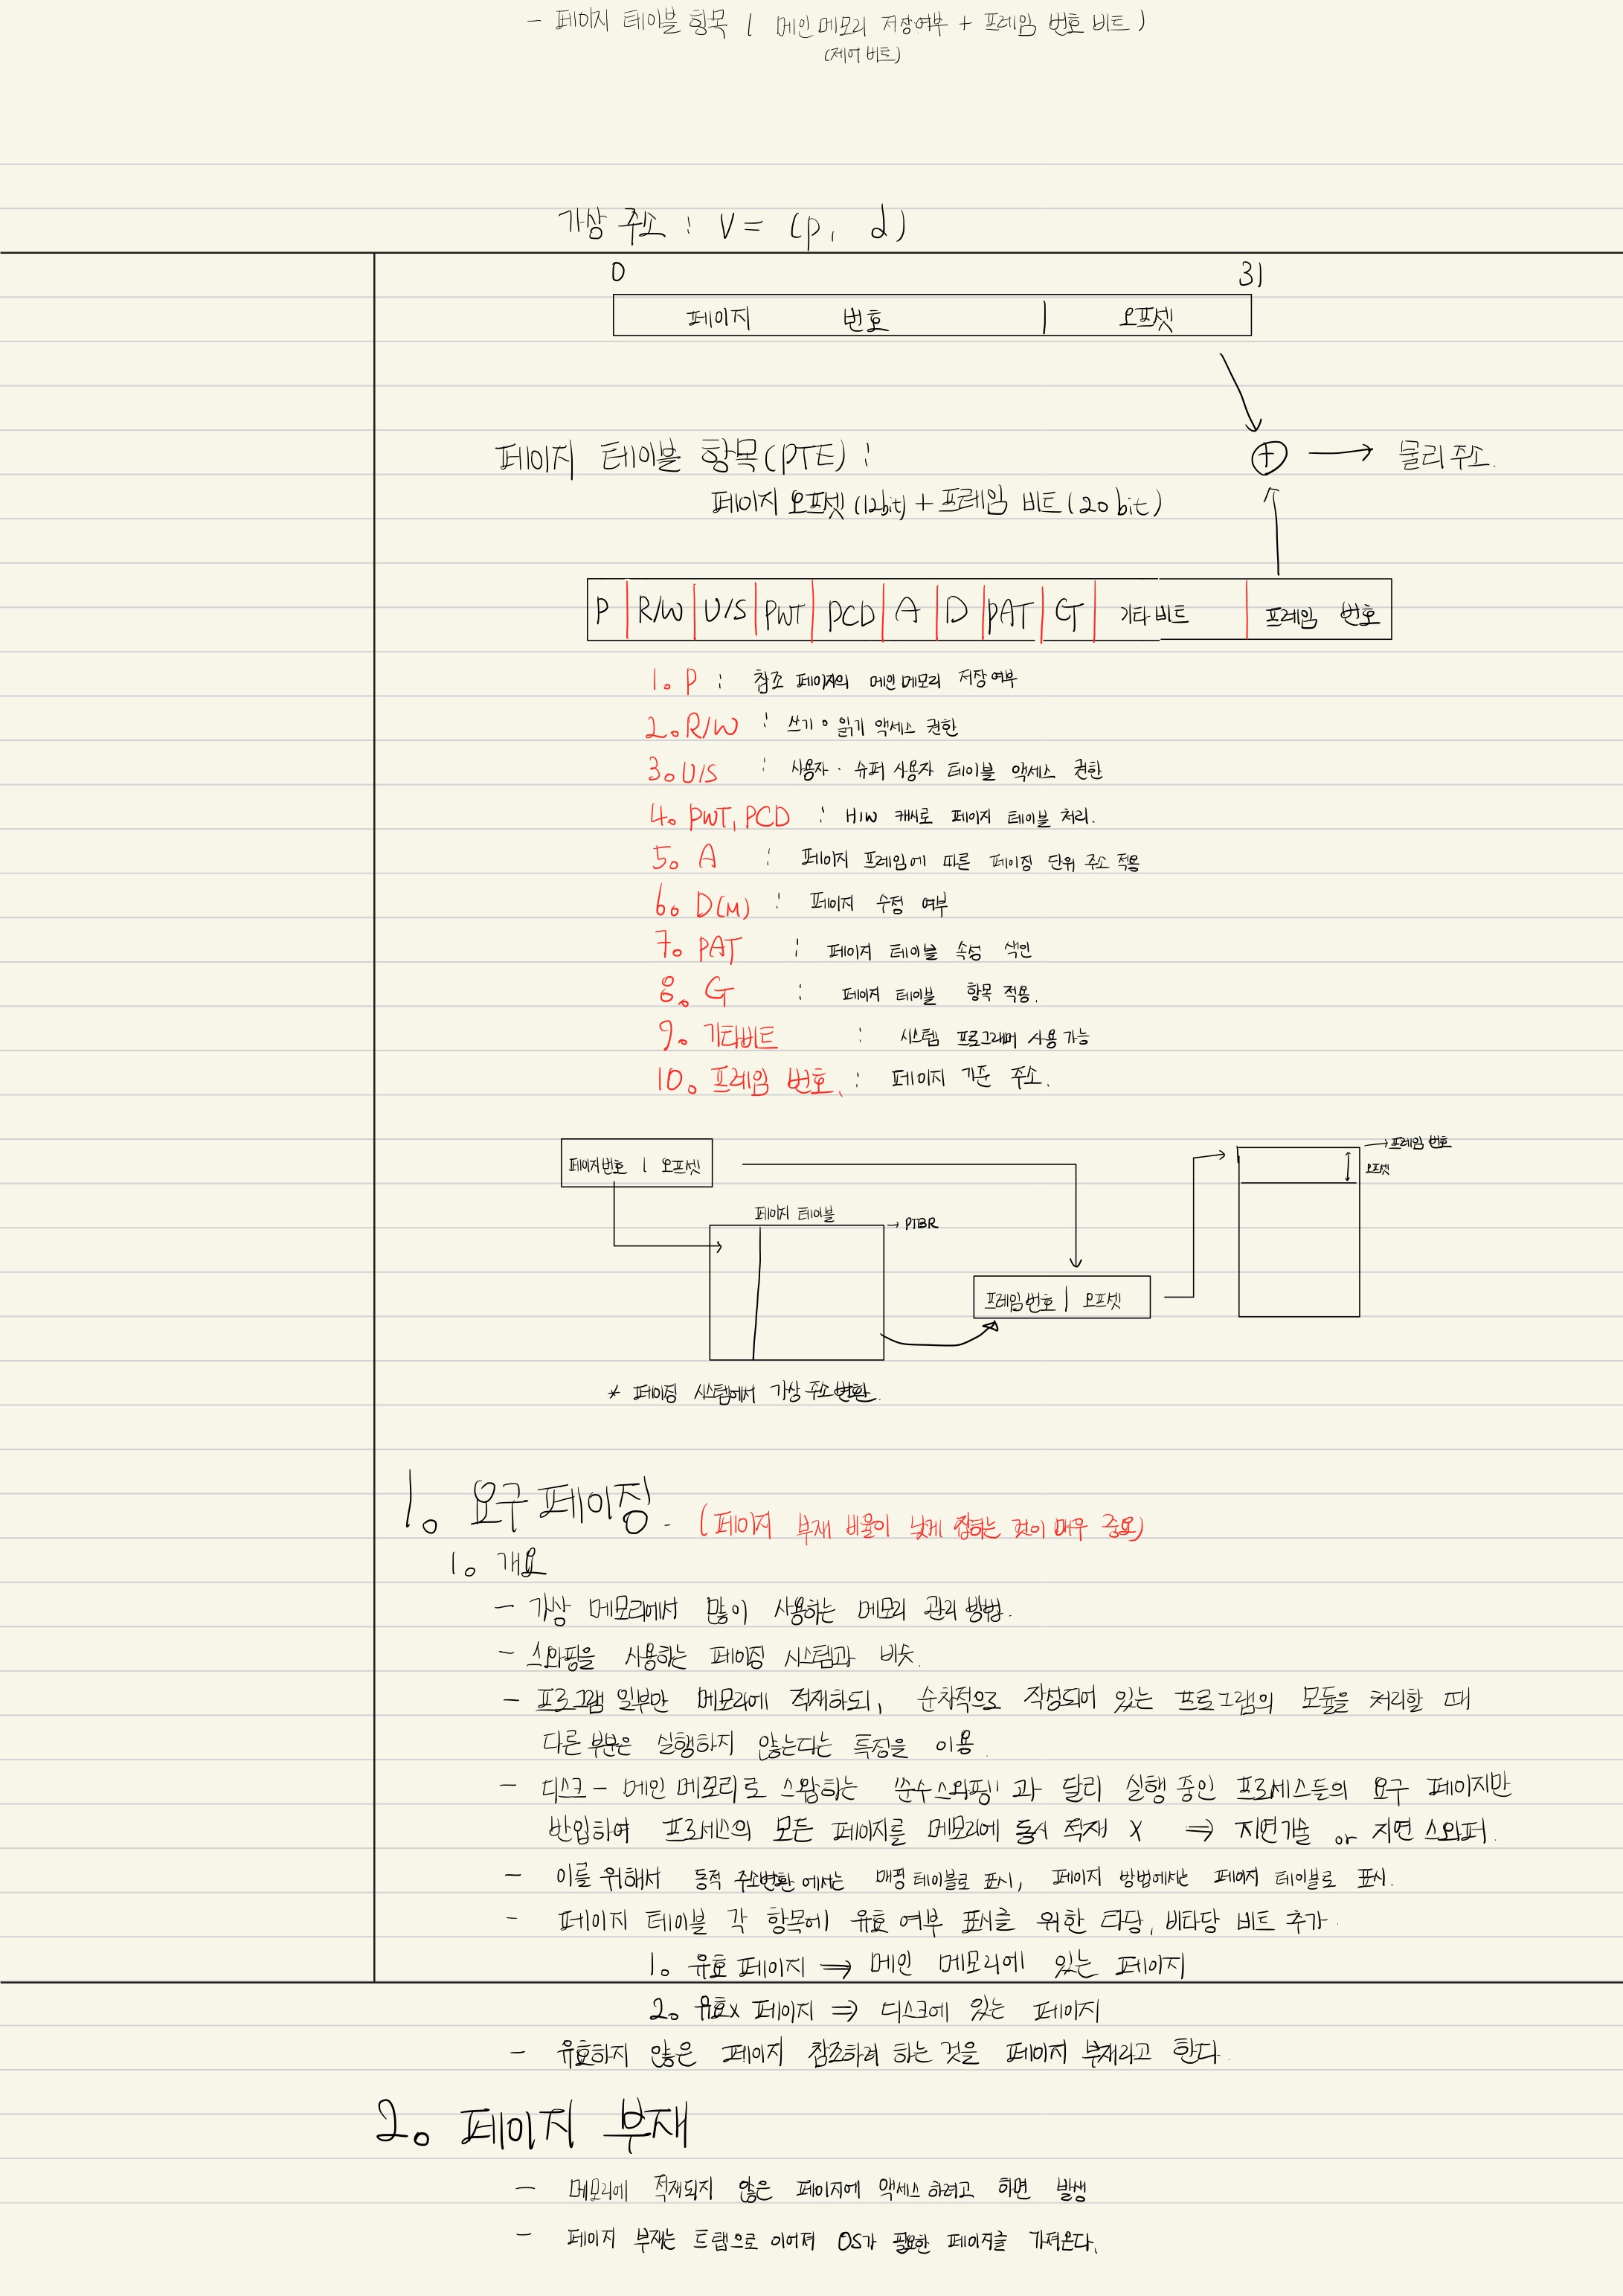 - 페이지 테이블 항목 ( 메인 메모리 저장여부 + 프레임 번호 비트 )
(제어 비트)
가상 주소 : V = (p, d)
0 31
페이지 번호 | 오프셋
페이지 테이블 항목(PTE) :
+ → 물리 주소.
페이지 오프셋 (12bit) + 프레임 비트 (20 bit)
P R/W U/S PWT PCD A D PAT G 기타 비트 프레임 번호
1. P : 참조 페이지의 메인 메모리 저장 여부
2. R/W : 쓰기 · 읽기 액세스 권한
3. U/S : 사용자 · 슈퍼 사용자 테이블 액세스 권한
4. PWT, PCD : H/W 캐시로 페이지 테이블 처리.
5. A : 페이지 프레임에 따른 페이징 단위 주소 적용
6. D(M) : 페이지 수정 여부
7. PAT : 페이지 테이블 속성 색인
8. G : 페이지 테이블 항목 적용.
9. 기타비트 : 시스템 프로그래머 사용 가능
10. 프레임 번호. : 페이지 기준 주소.
페이지 번호 | 오프셋
→ 프레임 번호
오프셋
페이지 테이블
→ PTBR
프레임 번호 | 오프셋
* 페이징 시스템에서 가상 주소 변환.
1. 요구 페이징. (페이지 부재 비율이 낮게 정하는 것이 매우 중요)
1. 개요
- 가상 메모리에서 많이 사용하는 메모리 관리 방법.
- 스와핑을 사용하는 페이징 시스템과 비슷.
- 프로그램 일부만 메모리에 적재하되, 순차적으로 작성되어 있는 프로그램의 모듈을 처리할 때
다른 부분은 실행하지 않는다는 특징을 이용.
- 디스크 - 메인 메모리로 스왑하는 '순수스와핑' 과 달리 실행 중인 프로세스들의 요구 페이지만
반입하여 프로세스의 모든 페이지를 메모리에 동시 적재 X ⇒ 지연기술 or 지연 스와퍼.
- 이를 위해서 동적 주소변환 에서는 매핑 테이블로 표시, 페이지 방법에서는 페이지 테이블로 표시.
- 페이지 테이블 각 항목에 유효 여부 표시를 위한 타당, 비타당 비트 추가.
1. 유효 페이지 ⇒ 메인 메모리에 있는 페이지
2. 유효x 페이지 ⇒ 디스크에 있는 페이지
- 유효하지 않은 페이지 참조하려 하는 것을 페이지 부재라고 한다.
2. 페이지 부재
- 메모리에 적재되지 않은 페이지에 액세스 하려고 하면 발생
- 페이지 부재는 트랩으로 이어져 OS가 필요한 페이지를 가져온다.